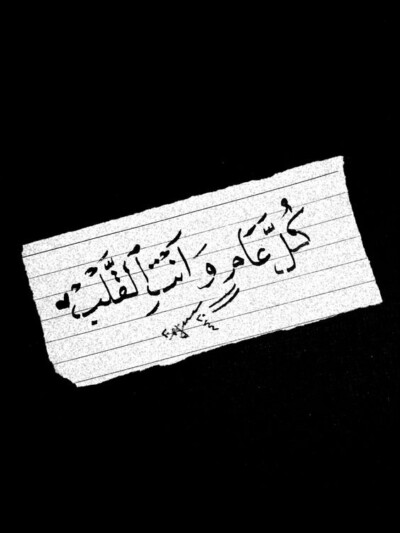 كُلَّ عَامٍ وَ انْتِ القَلْب